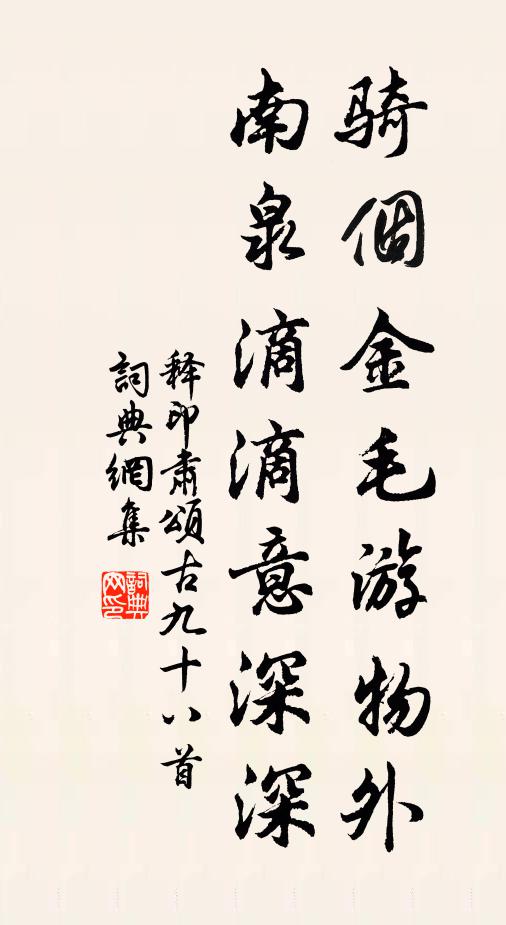 騎個金毛游物外
南泉滴滴意深深
释印肅頌古九十八首
詞典網集
詞典
网印